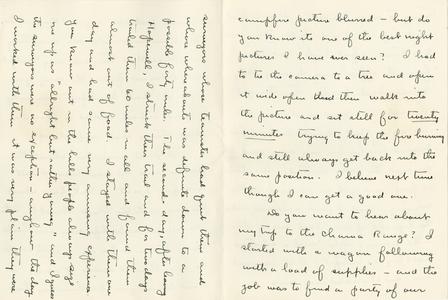 campfire picture blurred – but do
you know its one of the best night
pictures I have ever seen? I had
to tie the camera to a tree and open
it wide open then walk into
the picture and set still for twenty
minutes trying to keep the fire burning
and still always get back into the
same position. I believe next time
though I can get a good one.
Do you want to hear about
my trip to the Chama Range? I
started with a wagon following
with a load of supplies – and the
job was to find a party of our
surveyors whose teamster had quit them and
whose whereabouts was definite down to a
possible forty miles. The second day, after leaving
Hopewell, I struck their trail and for two days
trailed them 60 miles in all and found them
almost out of food. I stayed with them one
day and had some very amusing experience
You know out in the hills people always size
me up as "allright but rather young" and I guess
the surveyors were no exception – anyhow the day
I worked with them it was very plain they were